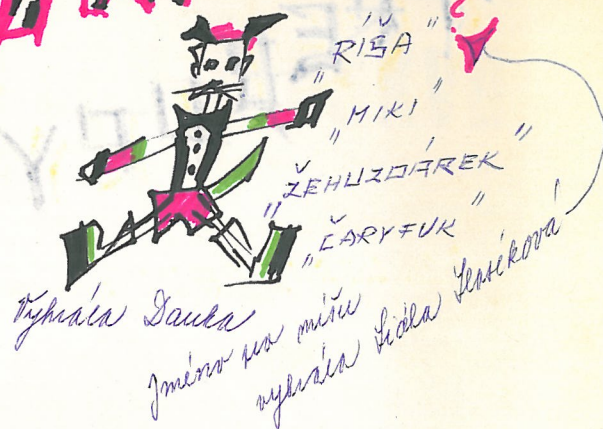 „RÍŠA"
„MIKI"
„ŽEHUZDÁREK"
„ČARYFUK"
Vyhrála Danka
Jméno pro míšu
vyhrála Lída